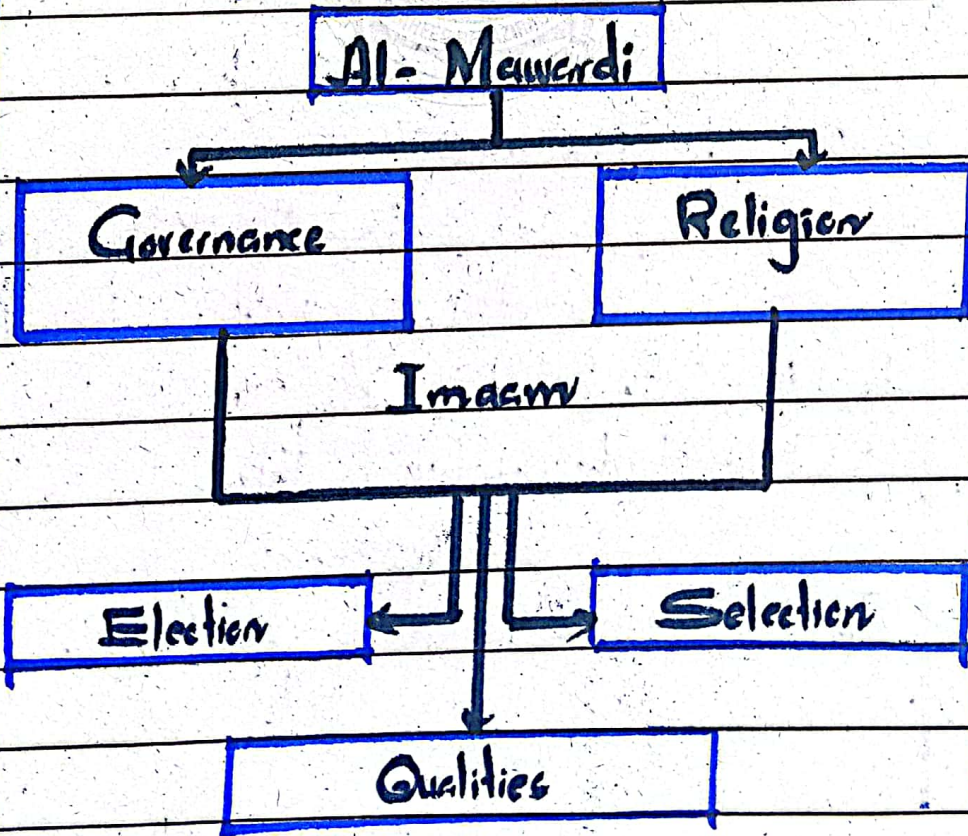 Al- Mawardi
Governance
Religion
Imaam
Election
Selection
Qualities